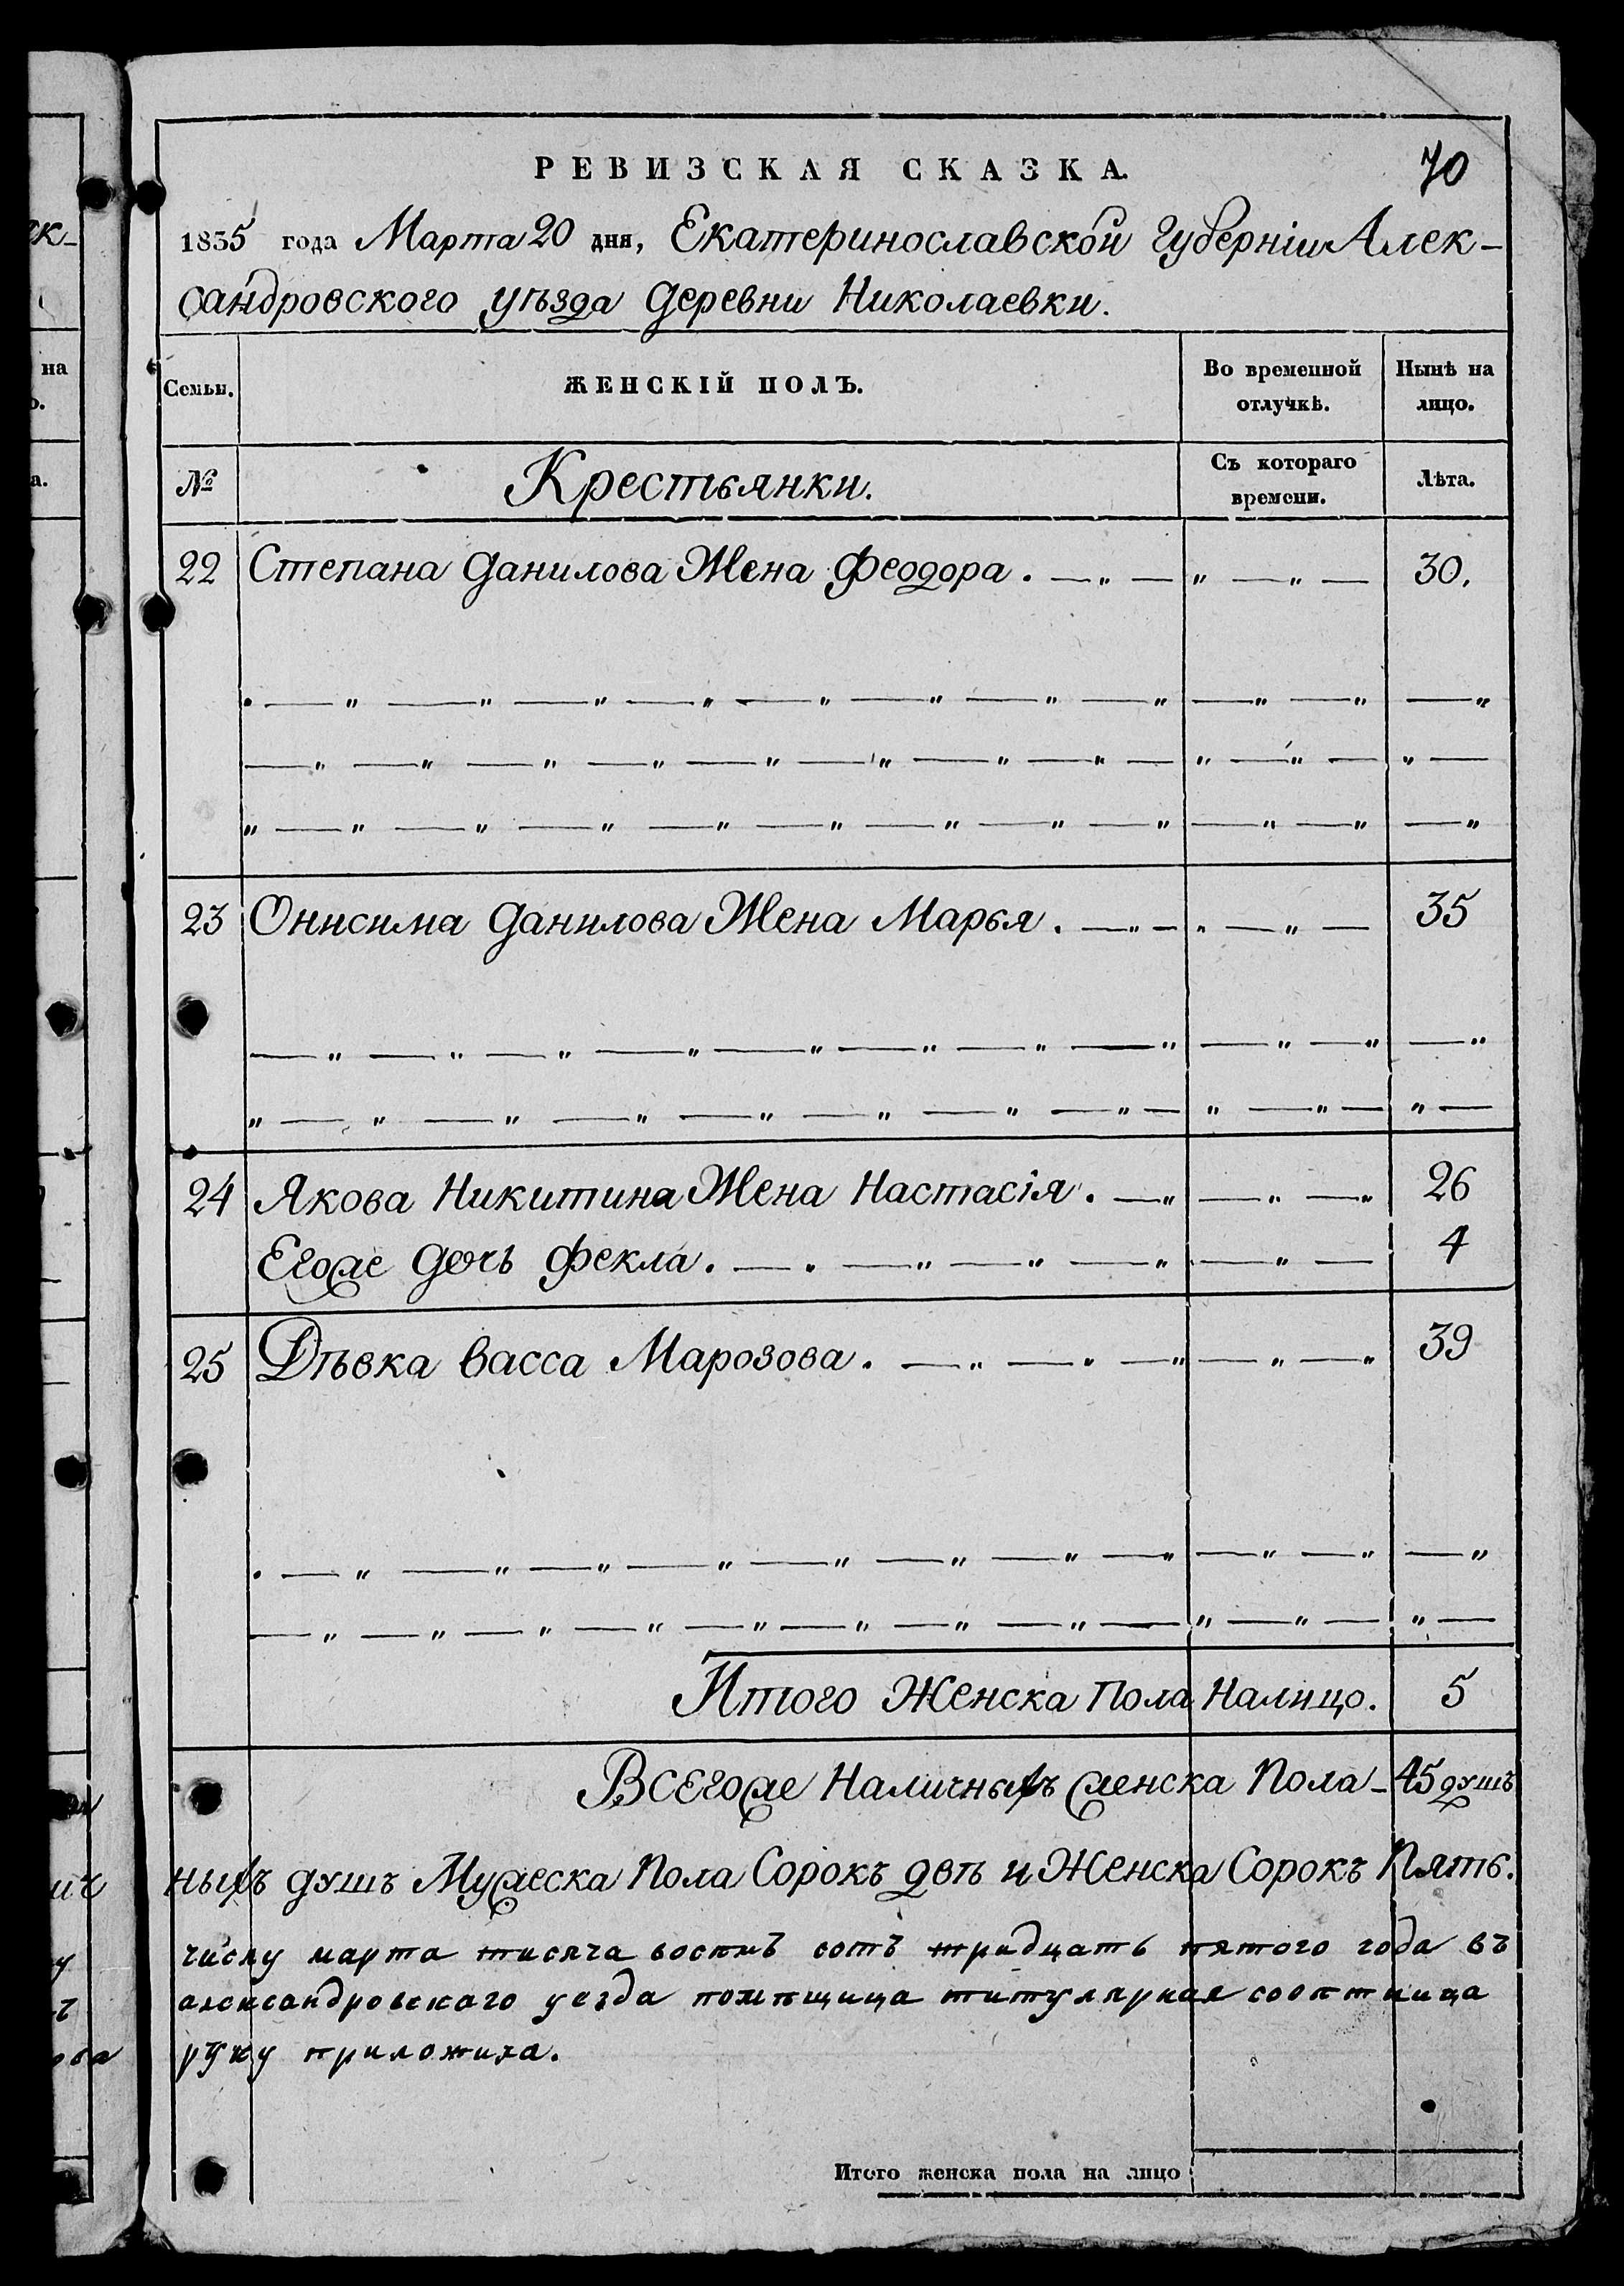 РЕВИЗСКАЯ СКАЗКА.
70
1835 года Марта 20 дня, Екатеринославской губерніи Алек-
сандровского уѣзда деревни Николаевки.
Семьи.
ЖЕНСКІЙ ПОЛЪ.
Во временной отлучкѣ.
Нынѣ на лицо.
№
Крестьянки.
Съ котораго времени.
Лѣта.
22 Степана Данилова Жена Феодора. 30.
23 Онисима Данилова Жена Марья. 35
24 Якова Никитина Жена Настасія. 26
Егоже дочь Фекла. 4
25 Дѣвка Васса Марозова. 39
Итого Женска Пола Налицо. 5
Всегоже Наличныхъ женска Пола - 45 душъ
ныхъ душъ Мужеска Пола Сорокъ двѣ и Женска Сорокъ Пять.
числу марта тисяча восемъ сотъ тридцать пятого года въ
александровскаго уезда помѣщица титулярная
руку приложила.
Итого женска пола на лицо
на
а.